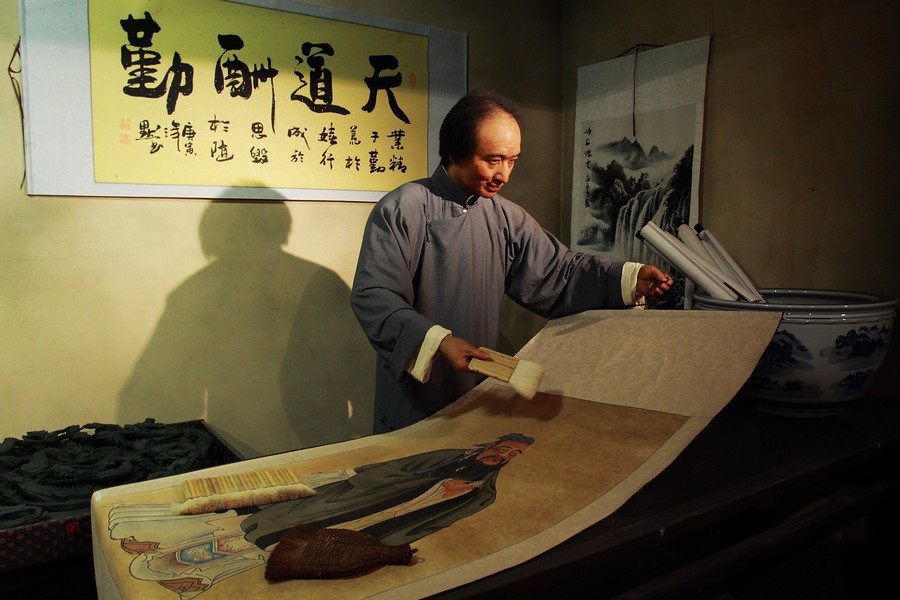 天道酬勤
業精
于勤
荒於
嬉行
成於
思毁
於随
庚寅